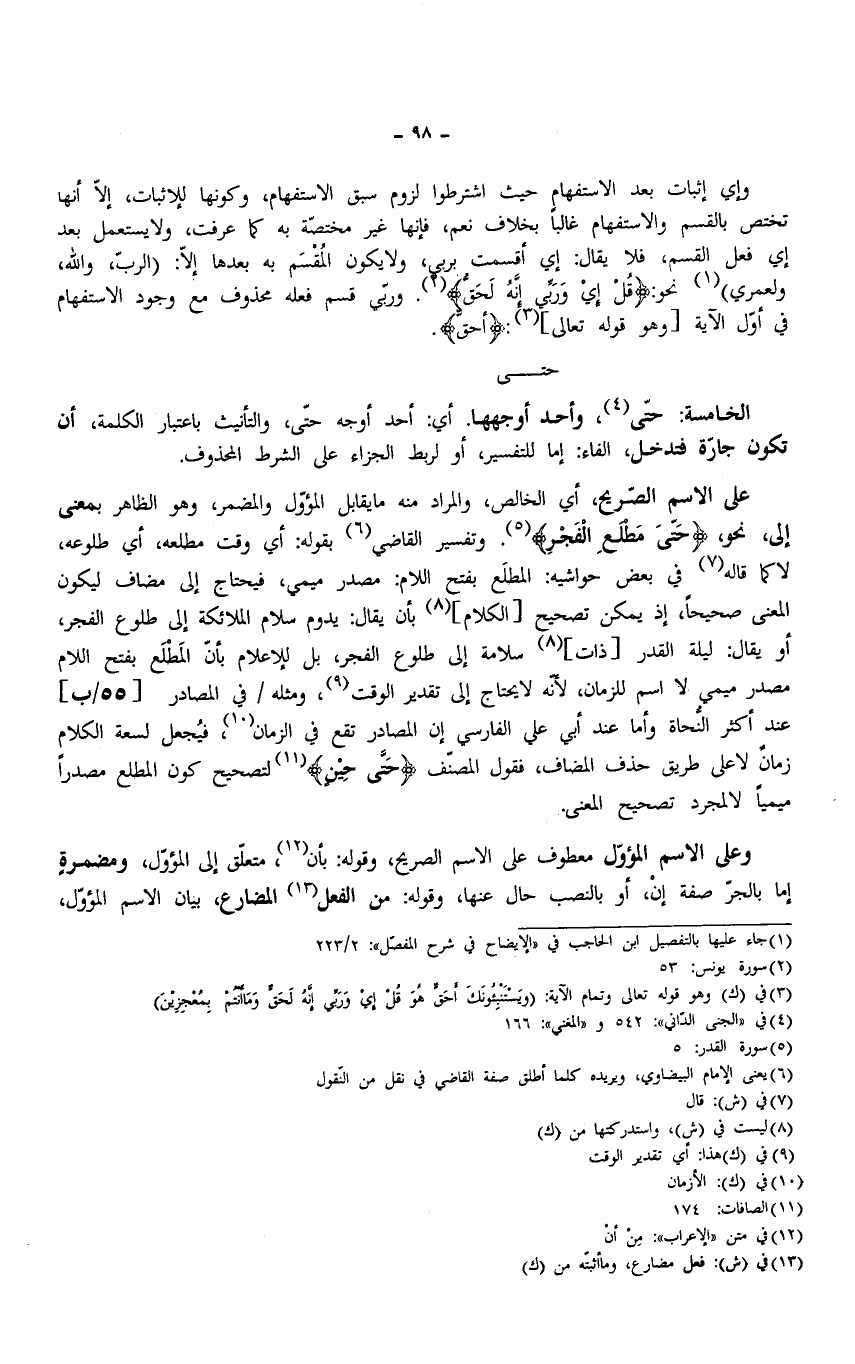 – ٩٨ –
وإي إثبات بعد الاستفهام حيث اشترطوا لزوم سبق الاستفهام، وكونها للإثبات، إلاّ أنها
تختص بالقسم والاستفهام غالباً بخلاف نعم، فإنها غير مختصّة به كما عرفت، ولايستعمل بعد
إي فعل القسم، فلا يقال: إي أقسمت بربي، ولايكون المُقْسَم به بعدها إلاّ: (الربّ، والله،
ولعمري)(١) نحو:﴿قُلْ إِيْ وَرَبِّي إِنَّهُ لَحَقٌّ﴾(٢). وربّي قسم فعله محذوف مع وجود الاستفهام
في أوّل الآية [وهو قوله تعالى](٣):﴿أحقٌّ﴾.
حتـــى
الخامسة: حتّى(٤)، وأحد أوجهها. أي: أحد أوجه حتّى، والتأنيث باعتبار الكلمة، أن
تكون جارّة فتدخل، الفاء: إما للتفسير، أو لربط الجزاء على الشرط المحذوف.
على الاسم الصّريح، أي الخالص، والمراد منه مايقابل المؤوّل والمضمر، وهو الظاهر بمعنى
إلى، نحو، ﴿حَتَّىَ مَطْلَعِ الْفَجْرِ﴾(٥). وتفسير القاضي(٦) بقوله: أي وقت مطلعه، أي طلوعه،
لاكما قاله(٧) في بعض حواشيه: المطلَع بفتح اللام: مصدر ميمي، فيحتاج إلى مضاف ليكون
المعنى صحيحاً، إذ يمكن تصحيح [الكلام](٨) بأن يقال: يدوم سلام الملائكة إلى طلوع الفجر،
أو يقال: ليلة القدر [ذات](٨) سلامة إلى طلوع الفجر، بل للإعلام بأنّ المَطْلَع بفتح اللام
مصدر ميمي لا اسم للزمان، لأنّه لايحتاج إلى تقدير الوقت(٩)، ومثله / في المصادر [٥٥/ب]
عند أكثر النُّحاة وأما عند أبي علي الفارسي إن المصادر تقع في الزمان(١٠)، فيُجعل لسعة الكلام
زمانٌ لاعلى طريق حذف المضاف، فقول المصنّف ﴿حَتَّى حِيْنٍ﴾(١١)لتصحيح كون المطلع مصدراً
ميمياً لالمجرد تصحيح المعنى.
وعلى الاسم المؤوّل معطوف على الاسم الصريح، وقوله: بأن(١٢)، متعلّق إلى المؤوّل، ومضمرةٍ
إما بالجرّ صفة إنْ، أو بالنصب حال عنها، وقوله: من الفعل(١٣) المضارع، بيان الاسم المؤوّل،
(١)جاء عليها بالتفصيل ابن الحاجب في «الإيضاح في شرح المفصّل»: ٢٢٣/٢
(٢)سورة يونس: ٥٣
(٣)في (ك) وهو قوله تعالى وتمام الآية: (وَيَسْتَنْبِئُونَكَ أَحَقٌّ هُوَ قُلْ إِيْ وَرَبِّي إِنَّهُ لَحَقٌّ وَمَاأَنْتُمْ بِمُعْجِزِيْنَ)
(٤)في «الجنى الدّاني»: ٥٤٢ و «المغني»: ١٦٦
(٥)سورة القدر: ٥
(٦)يعنى الإمام البيضاوي، ويريده كلما أطلق صفة القاضي في نقل من النّقول
(٧)في (ش): قال
(٨)ليست في (ش)، واستدركتها من (ك)
(٩)في (ك)هذا: أي تقدير الوقت
(١٠)في (ك): الأزمان
(١١)الصافات: ١٧٤
(١٢)في متن «الإعراب»: مِنْ أنْ
(١٣)في (ش): فعل مضارع، وماأثبتّه من (ك)